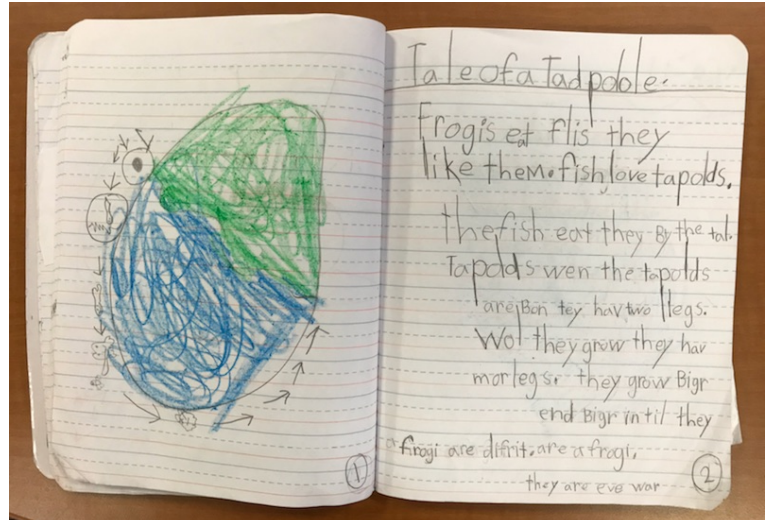 Tale of a Tadpole.
Frogis eat flis they
like them. fish love tapolds.
the fish eat they By the tal.
Tapolds wen the tapolds
are Bon tey hav two llegs.
Wol they grow they hav
mor legs. they grow Bigr
end Bigr intil they
frogi are difrit. are a frogi.
they are eve war
1
2